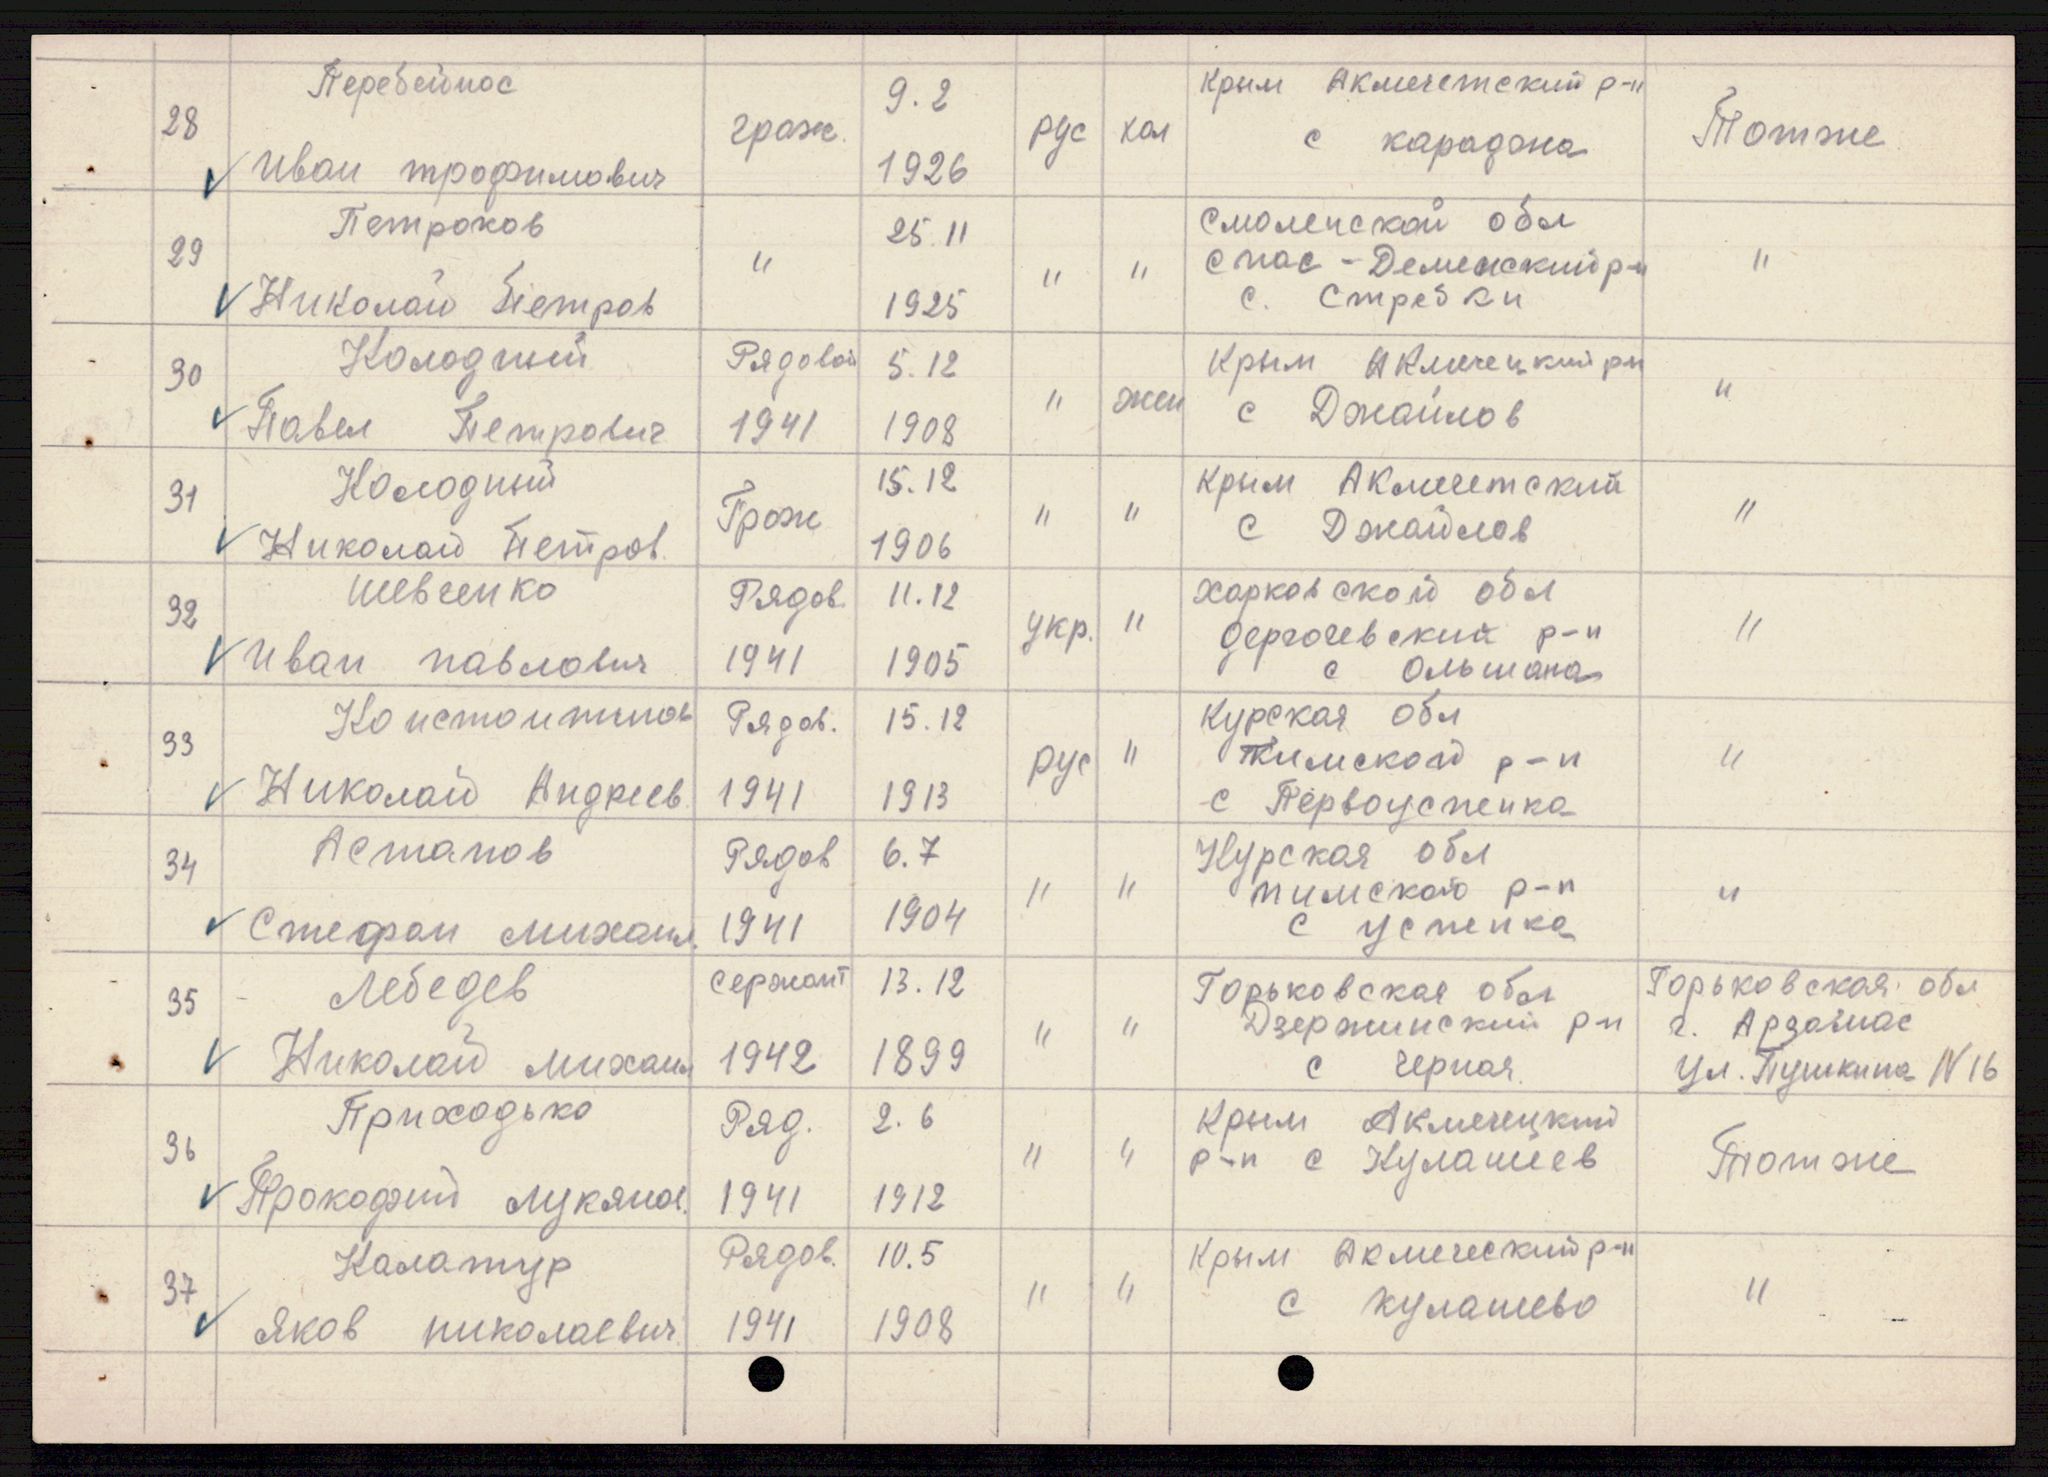 28 Перебейнос Иван трофимович граж. 9.2 1926 рус хол Крым Акмечетский р-н с карадона Тотже
29 Петроков Николай Петров " 25.11 1925 " " Смоленской обл Спас-Деменский р-н с. Стребки "
30 Колодний Павел Петрович Рядовой 1941 5.12 1908 " жен Крым Акмечецкий рн с Джайлов "
31 Колодный Николай Петров. Грож 15.12 1906 " " Крым Акмечетский с Джайлов "
32 Шевченко Иван павлович Рядов. 1941 11.12 1905 укр. " Харковской обл дергочевский р-н с Ольшана "
33 Констонтинов Николай Андреев. Рядов. 1941 15.12 1913 рус " Курская обл Тимской р-н с Первоуспенка "
34 Астапов Стефан михаил. Рядов 1941 6.7 1904 " " Курская обл тимской р-н с успенка "
35 Лебедев Николай михаил Сержант 1942 13.12 1899 " " Горьковская обл Дзержинский р-н с Черная Горьковская обл г. Арзамас ул. Пушкина N 16
36 Приходько Прокофий лукянов. Ряд. 1941 2.6 1912 " " Крым Акмечецкий р-н с Кулашев Тотже
37 Калатур Яков николаевич Рядов. 1941 10.5 1908 " " Крым Акмеческий р-н с кулашево "